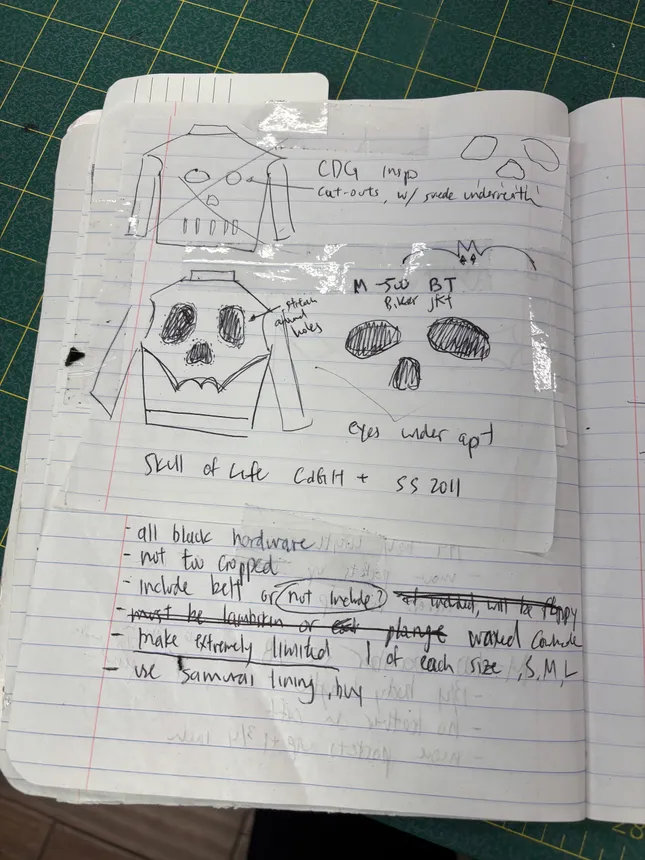 CDG insp
cut-outs, w/ suede underneath
M-500 BT
Biker jkt
stitch
around
holes
eyes under apt
Skull of Life CdGH + SS 2011
- all black hardware
- not too cropped
- include belt or not include? if included, will be floppy
- must be lambskin or waxed
- make extremely limited 1 of each size, S, M, L
- use samurai lining, buy